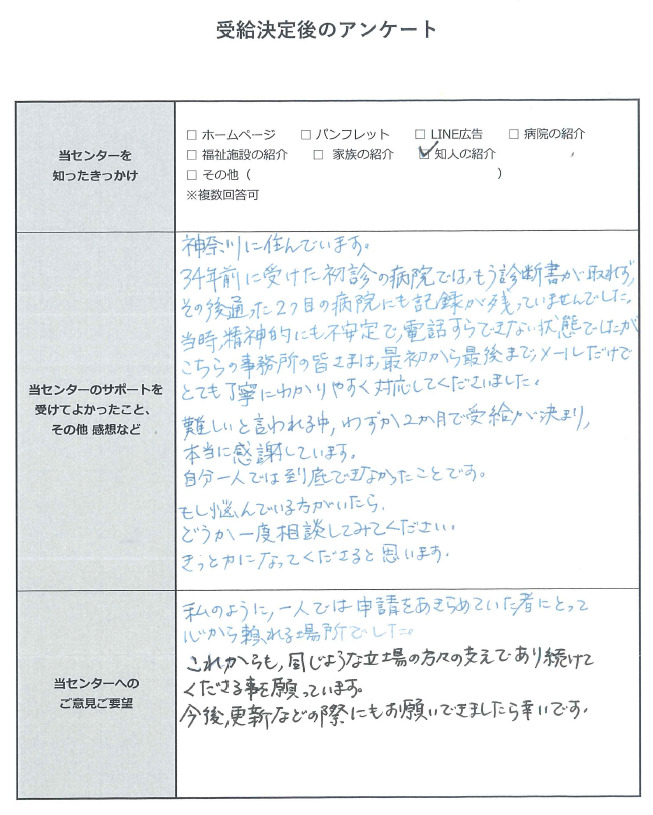 受給決定後のアンケート
当センターを
知ったきっかけ
□ ホームページ □ パンフレット □ LINE広告 □ 病院の紹介
□ 福祉施設の紹介 □ 家族の紹介 ☑ 知人の紹介
□ その他（ ）
※複数回答可
当センターのサポートを
受けてよかったこと、
その他 感想など
神奈川に住んでいます。
34年前に受けた初診の病院では、もう診断書が取れず、
その後通った2ヶ目の病院にも記録が残っていませんでした。
当時、精神的にも不安定で、電話すらできない状態でしたが
こちらの事務所の皆さまは、最初から最後まで、メールだけで
とても丁寧にわかりやすく対応してくださいました。
難しいと言われる中、わずか2か月で受給が決まり、
本当に感謝しています。
自分一人では到底できなかったことです。
もし悩んでいる方がいたら、
どうか一度相談してみてください。
きっと力になってくださると思います。
当センターへの
ご意見ご要望
私のように、一人では申請をあきらめていた者にとって
心から頼れる場所でした。
これからも、同じような立場の方々の支えであり続けて
くださる事を願っています。
今後、更新などの際にもお願いできましたら幸いです。